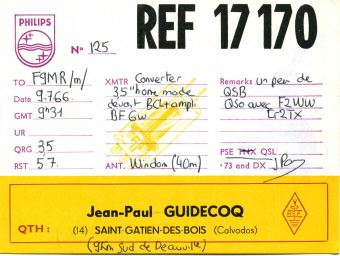 PHILIPS
REF 17 170
N° 125
TO F9MR/m/
Date 9.766
GMT 9h31
UR
QRG 35
RST 57
XMTR Converter
35m home made
devant BCL+ampli
BF Gw
ANT. Windom (40m)
Remarks un peu de
QSB
QSO avec F2WW
PSE TNX QSL
'73 and DX
Jean-Paul GUIDECOQ
QTH: (14) SAINT-GATIEN-DES-BOIS (Calvados)
(9km Sud de Deauville)